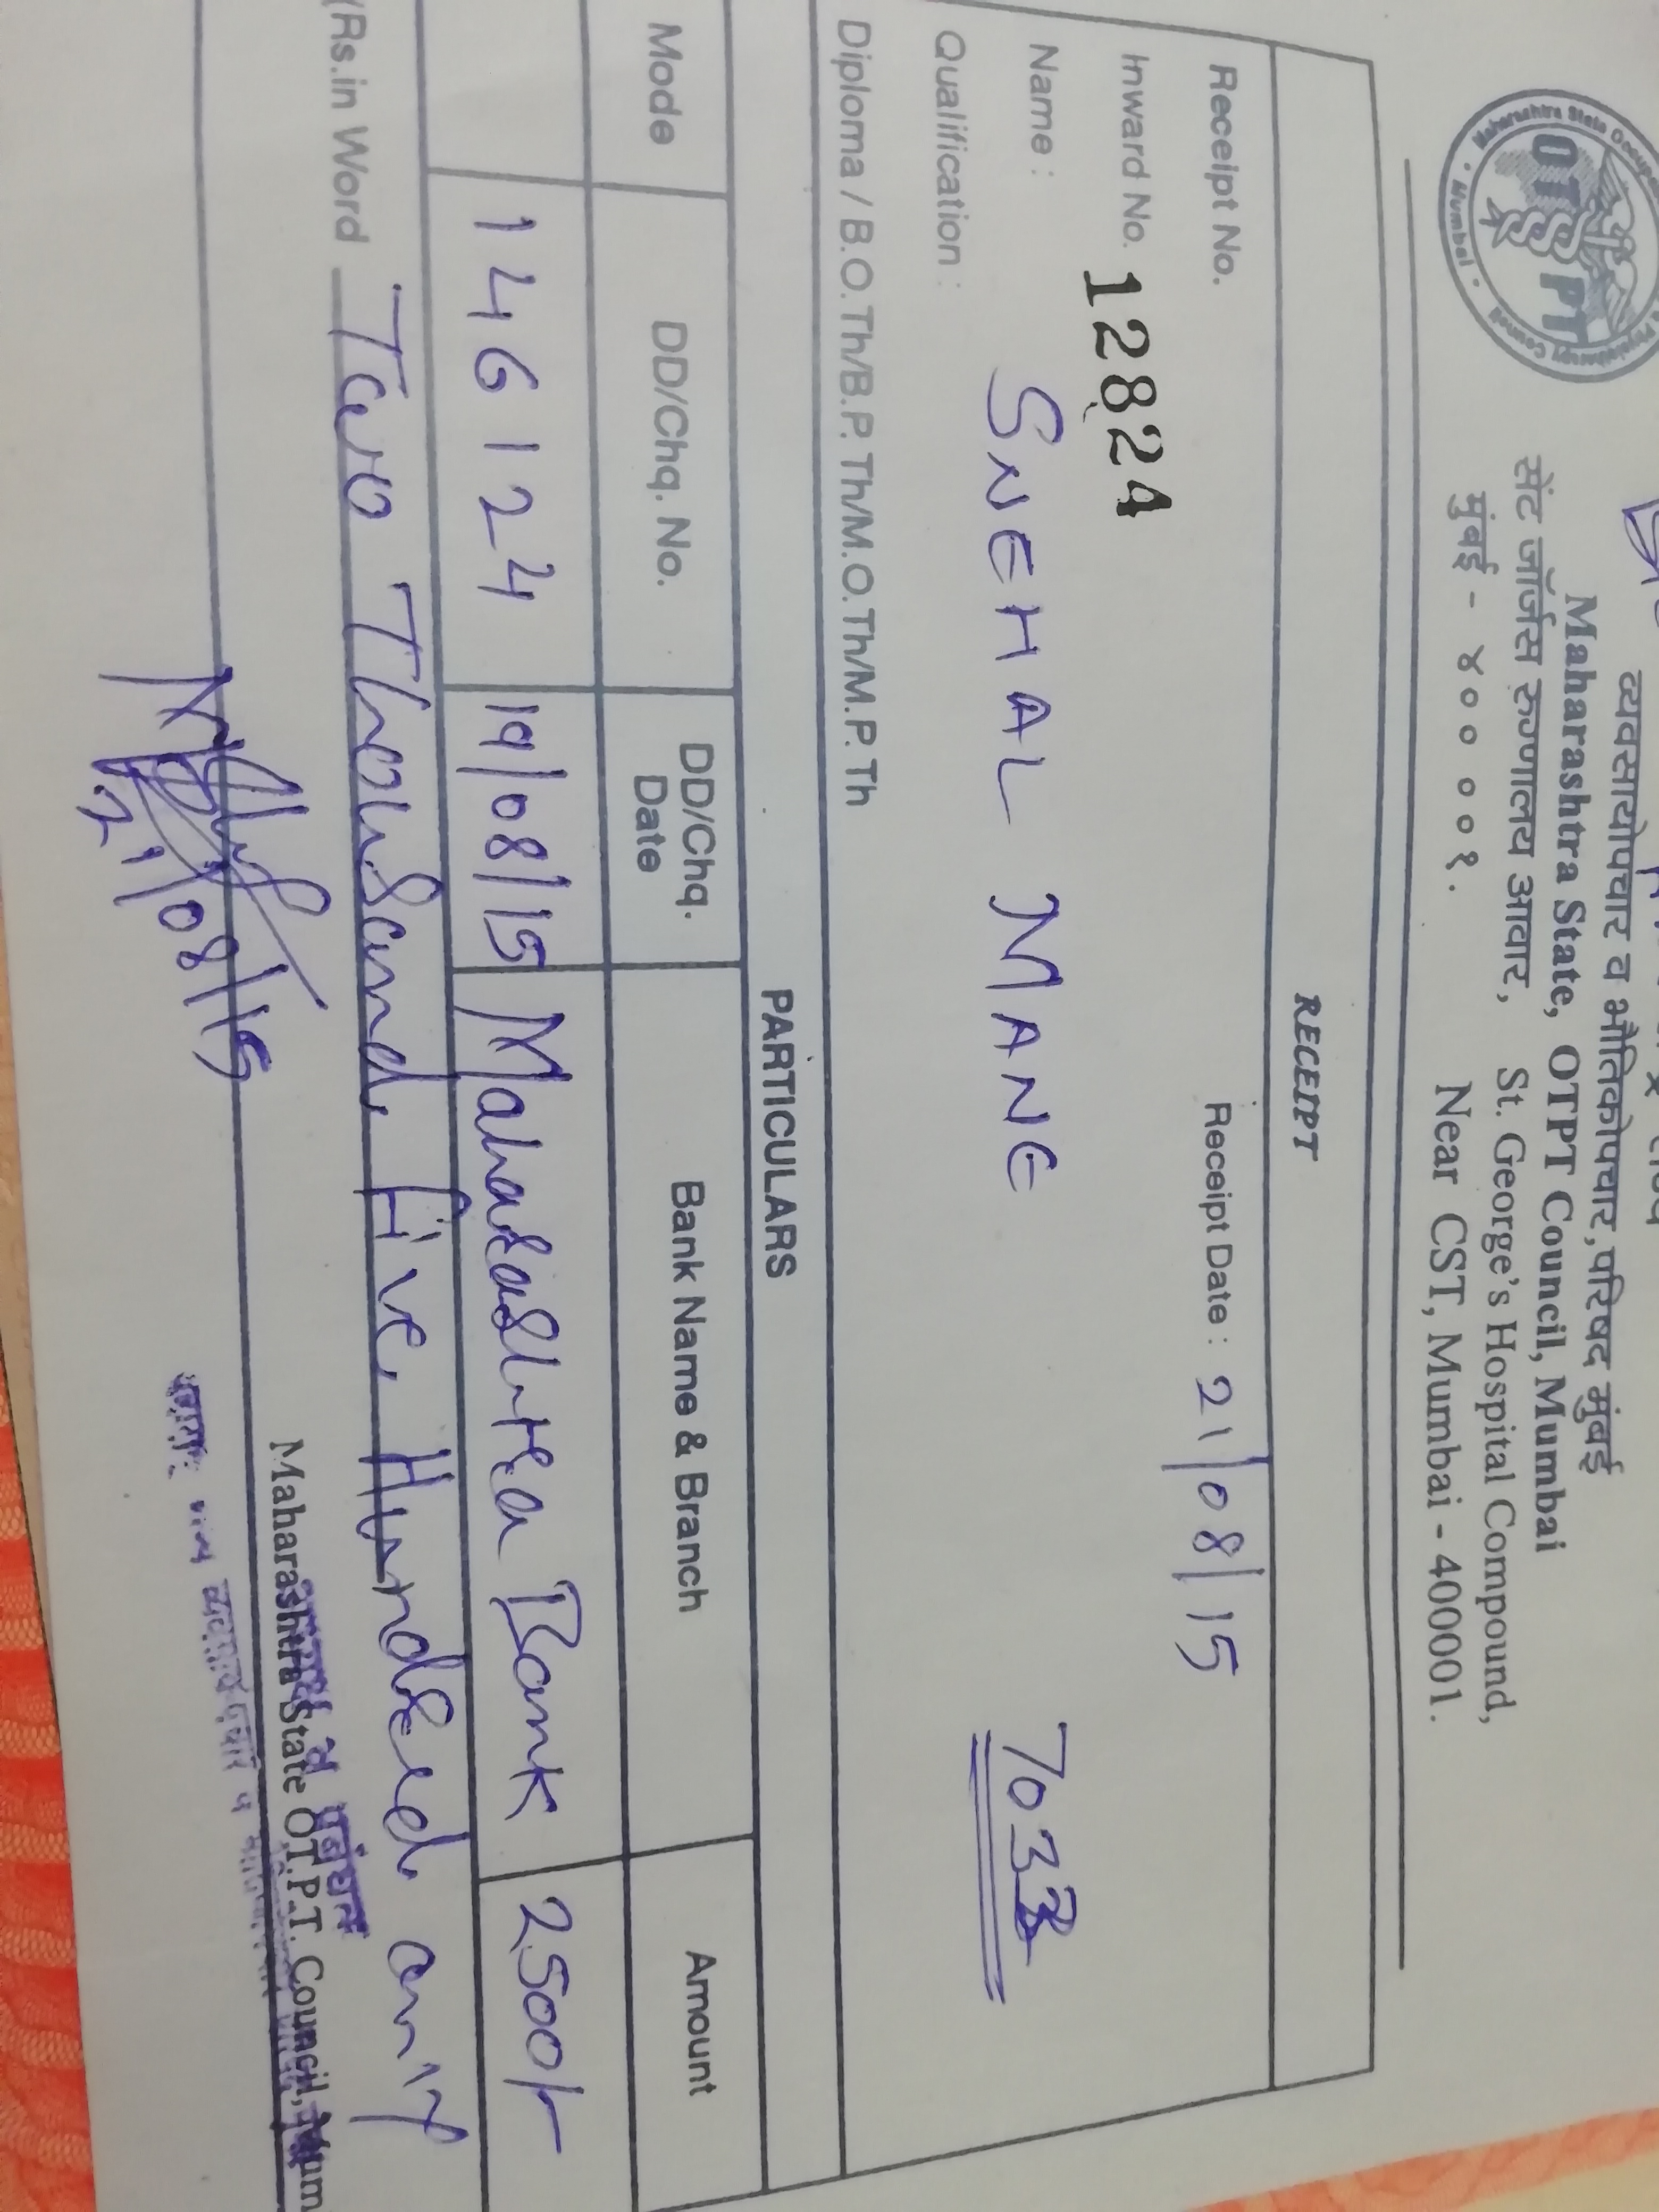 व्यवसायोपचार व भौतिकोपचार,परिषद मुंबई
Maharashtra State, OTPT Council, Mumbai
सेंट जॉर्जस रुग्णालय आवार, St. George's Hospital Compound,
मुंबई - ४०० ००१. Near CST, Mumbai - 400001.
OT PT
Mumbai
RECEIPT
Receipt No. Receipt Date : 21/08/15
Inward No. 12824
Name : SNEHAL MANE 7033
Qualification :
Diploma / B.O.Th/B.P.Th/M.O.Th/M.P.Th
PARTICULARS
Mode DD/Chq. No. DD/Chq. Date Bank Name & Branch Amount
146124 19/08/15 Maharashtra Bank 2500/-
(Rs.in Word Two Thousand Five Hundred only
21/08/15
Maharashtra State OT.P.T. Council,